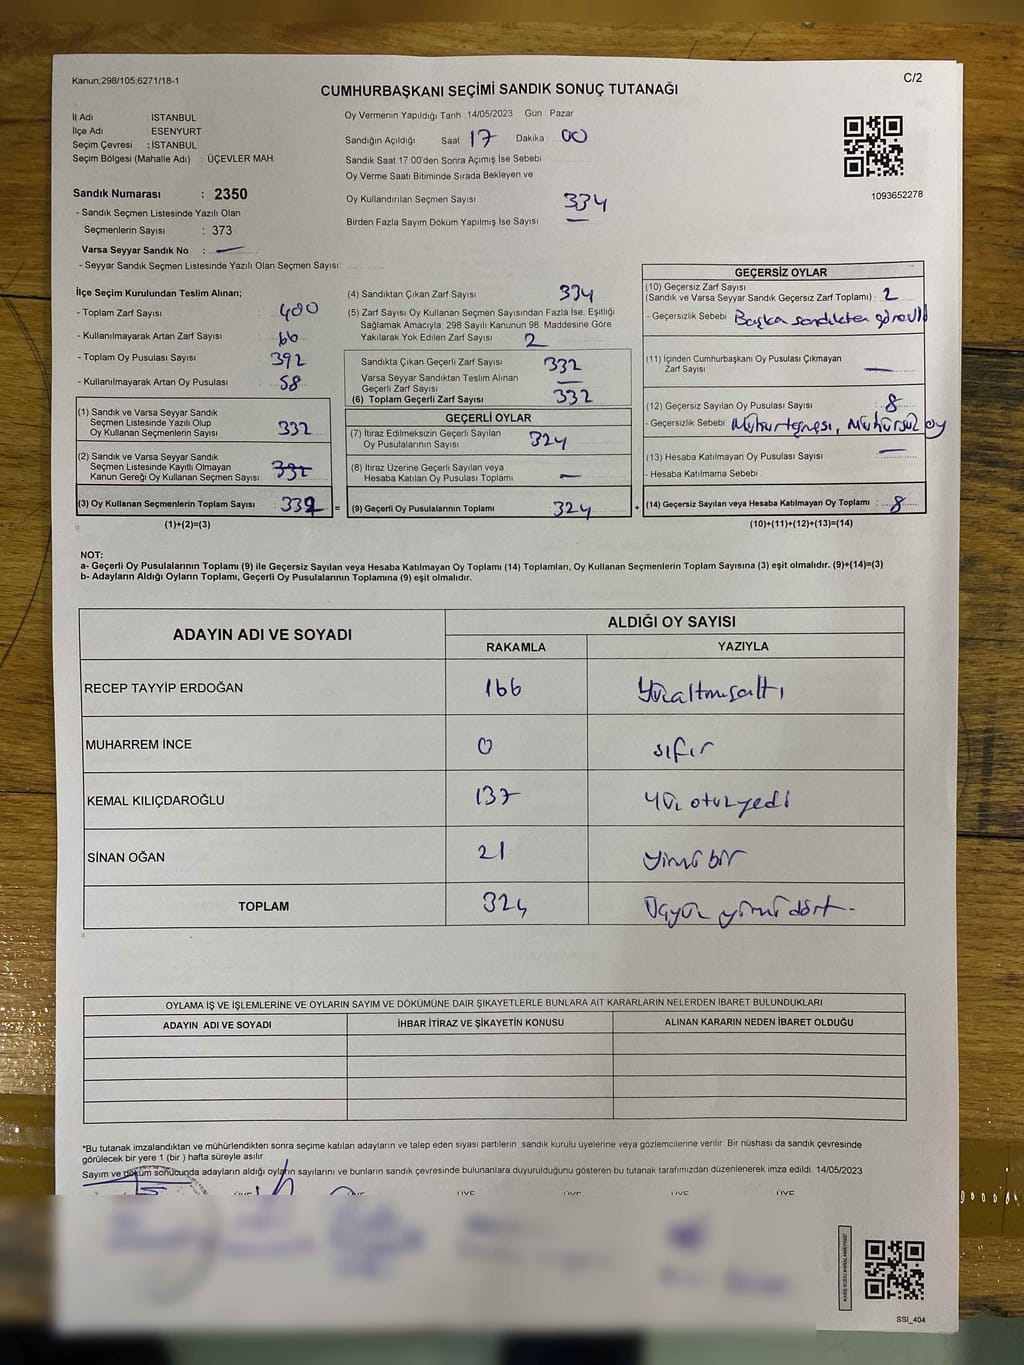 Kanun;298/105;6271/18-1
C/2
CUMHURBAŞKANI SEÇİMİ SANDIK SONUÇ TUTANAĞI
İl Adı : İSTANBUL
İlçe Adı : ESENYURT
Seçim Çevresi : İSTANBUL
Seçim Bölgesi (Mahalle Adı) : ÜÇEVLER MAH.
Sandık Numarası : 2350
- Sandık Seçmen Listesinde Yazılı Olan
Seçmenlerin Sayısı : 373
Varsa Seyyar Sandık No : —
- Seyyar Sandık Seçmen Listesinde Yazılı Olan Seçmen Sayısı:
Oy Vermenin Yapıldığı Tarih :14/05/2023 Gün Pazar
Sandığın Açıldığı Saat 17 Dakika 00
Sandık Saat 17:00'den Sonra Açımış İse Sebebi
Oy Verme Saati Bitiminde Sırada Bekleyen ve
Oy Kullandırılan Seçmen Sayısı 334
Birden Fazla Sayım Döküm Yapılmış İse Sayısı —
1093652278
İlçe Seçim Kurulundan Teslim Alınan;
- Toplam Zarf Sayısı 400
- Kullanılmayarak Artan Zarf Sayısı 66
- Toplam Oy Pusulası Sayısı 392
- Kullanılmayarak Artan Oy Pusulası 58
(1) Sandık ve Varsa Seyyar Sandık
Seçmen Listesinde Yazılı Olup
Oy Kullanan Seçmenlerin Sayısı 332
(2) Sandık ve Varsa Seyyar Sandık
Seçmen Listesinde Kayıtlı Olmayan
Kanun Gereği Oy Kullanan Seçmen Sayısı 332
(3) Oy Kullanan Seçmenlerin Toplam Sayısı 332
(1)+(2)=(3)
(4) Sandıktan Çıkan Zarf Sayısı 334
(5) Zarf Sayısı Oy Kullanan Seçmen Sayısından Fazla İse, Eşitliği
Sağlamak Amacıyla, 298 Sayılı Kanunun 98. Maddesine Göre
Yakılarak Yok Edilen Zarf Sayısı 2
Sandıkta Çıkan Geçerli Zarf Sayısı 332
Varsa Seyyar Sandıktan Teslim Alınan
Geçerli Zarf Sayısı —
(6) Toplam Geçerli Zarf Sayısı 332
GEÇERLİ OYLAR
(7) İtiraz Edilmeksizin Geçerli Sayılan
Oy Pusulalarının Sayısı 324
(8) İtiraz Üzerine Geçerli Sayılan veya
Hesaba Katılan Oy Pusulası Toplamı —
= (9) Geçerli Oy Pusulalarının Toplamı 324 +
GEÇERSİZ OYLAR
(10) Geçersiz Zarf Sayısı
(Sandık ve Varsa Seyyar Sandık Geçersiz Zarf Toplamı) : 2
- Geçersizlik Sebebi Başka sandıkten
(11) İçinden Cumhurbaşkanı Oy Pusulası Çıkmayan
Zarf Sayısı —
(12) Geçersiz Sayılan Oy Pusulası Sayısı 8
- Geçersizlik Sebebi Mühürsüz oy
(13) Hesaba Katılmayan Oy Pusulası Sayısı —
- Hesaba Katılmama Sebebi
(14) Geçersiz Sayılan veya Hesaba Katılmayan Oy Toplamı : 8
(10)+(11)+(12)+(13)=(14)
NOT:
a- Geçerli Oy Pusulalarının Toplamı (9) ile Geçersiz Sayılan veya Hesaba Katılmayan Oy Toplamı (14) Toplamları, Oy Kullanan Seçmenlerin Toplam Sayısına (3) eşit olmalıdır. (9)+(14)=(3)
b- Adayların Aldığı Oyların Toplamı, Geçerli Oy Pusulalarının Toplamına (9) eşit olmalıdır.
ADAYIN ADI VE SOYADI
ALDIĞI OY SAYISI
RAKAMLA YAZIYLA
RECEP TAYYİP ERDOĞAN 166 Yüzaltmışaltı
MUHARREM İNCE 0 sıfır
KEMAL KILIÇDAROĞLU 137 yüz otuzyedi
SİNAN OĞAN 21 yirmi bir
TOPLAM 324 Üçyüz yirmi dört.
OYLAMA İŞ VE İŞLEMLERİNE VE OYLARIN SAYIM VE DÖKÜMÜNE DAİR ŞİKAYETLERLE BUNLARA AİT KARARLARIN NELERDEN İBARET BULUNDUKLARI
ADAYIN ADI VE SOYADI İHBAR İTİRAZ VE ŞİKAYETİN KONUSU ALINAN KARARIN NEDEN İBARET OLDUĞU
*Bu tutanak imzalandıktan ve mühürlendikten sonra seçime katılan adayların ve talep eden siyasi partilerin sandık kurulu üyelerine veya gözlemcilerine verilir. Bir nüshası da sandık çevresinde
görülecek bir yere 1 (bir ) hafta süreyle asılır.
Sayım ve döküm sonucunda adayların aldığı oyların sayılarını ve bunların sandık çevresinde bulunanlara duyurulduğunu gösteren bu tutanak tarafımızdan düzenlenerek imza edildi. 14/05/2023
ÜYE ÜYE ÜYE ÜYE ÜYE ÜYE
SSI_404